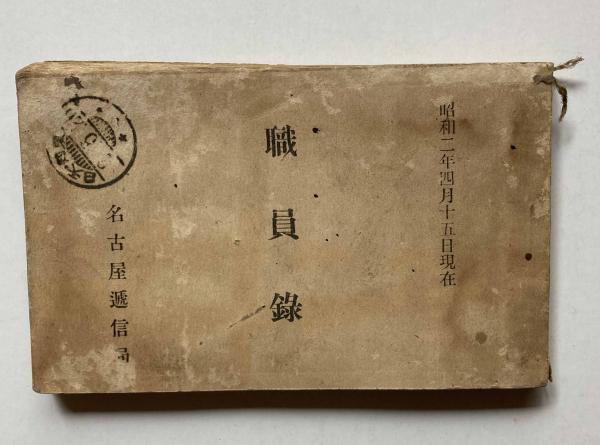 昭和二年四月十五日現在
職員錄
名古屋遞信局